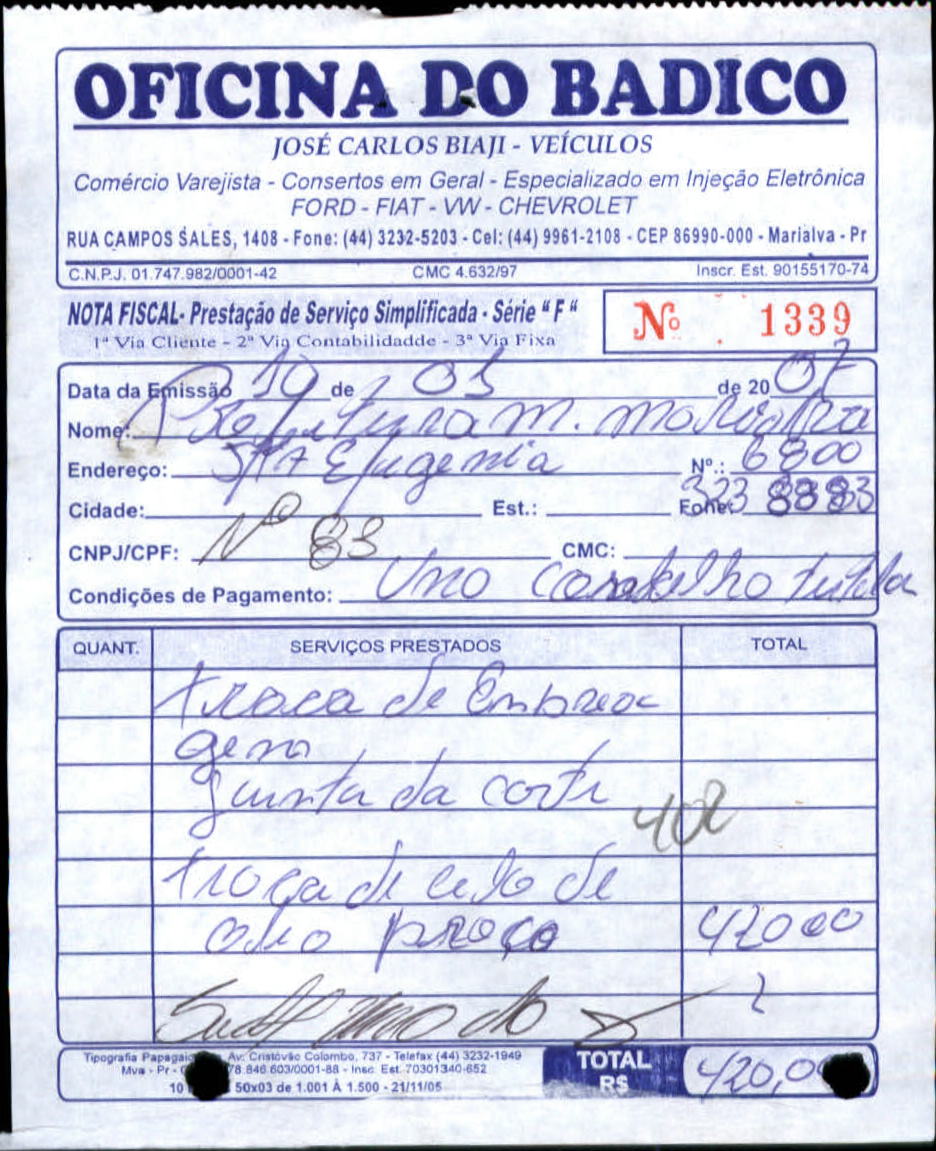 OFICINA DO BADICO
JOSÉ CARLOS BIAJI - VEÍCULOS
Comércio Varejista - Consertos em Geral - Especializado em Injeção Eletrônica
FORD - FIAT - VW - CHEVROLET
RUA CAMPOS SALES, 1408 - Fone: (44) 3232-5203 - Cel: (44) 9961-2108 - CEP 86990-000 - Marialva - Pr
C.N.P.J. 01.747.982/0001-42 CMC 4.632/97 Inscr. Est. 90155170-74
NOTA FISCAL- Prestação de Serviço Simplificada - Série "F"
1ª Via Cliente - 2ª Via Contabilidadde - 3ª Via Fixa
Nº 1339
Data da Emissão 10 de 03 de 20 07
Nome: M.
Endereço: Eugenia Nº.: 6800
Cidade: Est.: Fone: 323 8883
Nº 83
CNPJ/CPF: CMC:
Condições de Pagamento: Uno tutela
QUANT. SERVIÇOS PRESTADOS TOTAL
troca de Embrea
gem
junta da
troca de de
42000
Tipografia Av. Cristóvão Colombo, 737 - Telefax (44) 3232-1949
Mva - Pr - 78.846.603/0001-88 - Insc. Est. 70301340-652
10 50x03 de 1.001 À 1.500 - 21/11/05
TOTAL R$ 420,0